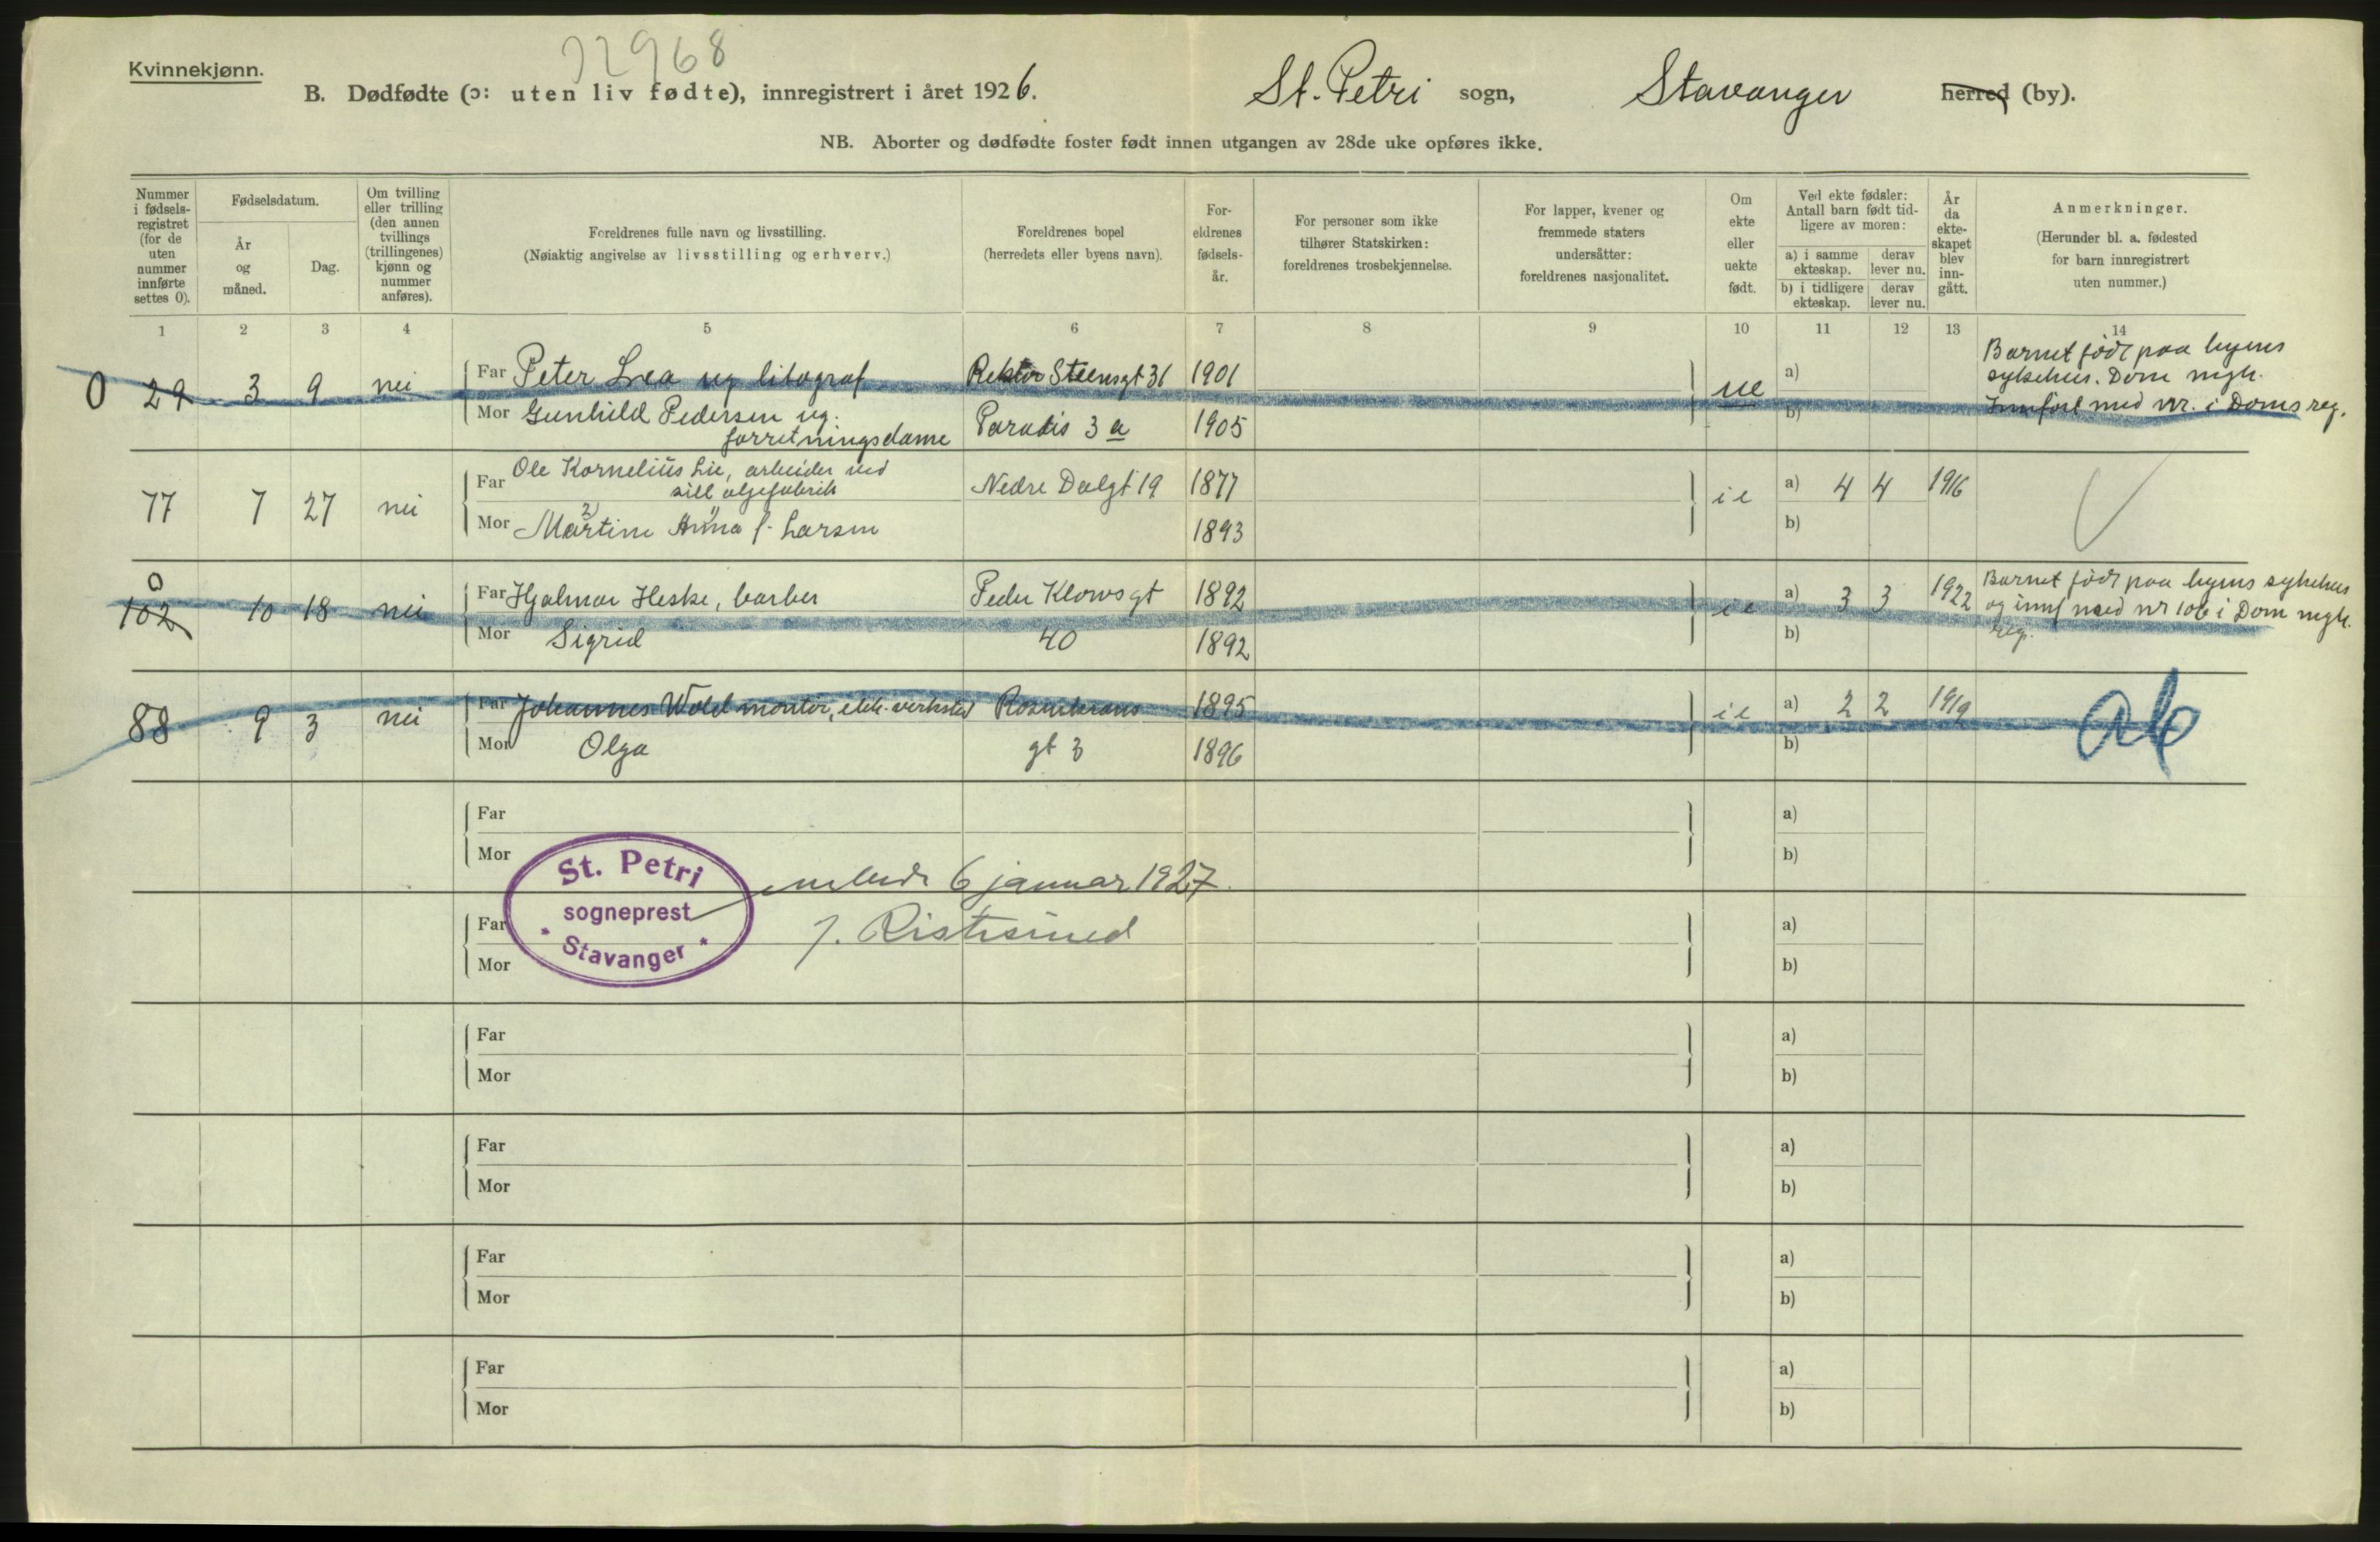 Kvinnekjønn.
B. Dødfødte (ɔ: uten liv fødte), innregistrert i året 1926. St. Petri sogn, Stavanger herred (by).
NB. Aborter og dødfødte foster født innen utgangen av 28de uke opføres ikke.
Nummer i fødselsregistret (for de uten nummer innførte settes 0).
Fødselsdatum.
År og måned.
Dag.
Om tvilling eller trilling (den annen tvillings (trillingenes) kjønn og nummer anføres).
Foreldrenes fulle navn og livsstilling.
(Nøiaktig angivelse av livsstilling og erhverv.)
Foreldrenes bopel
(herredets eller byens navn).
Foreldrenes fødselsår.
For personer som ikke tilhører Statskirken: foreldrenes trosbekjennelse.
For lapper, kvener og fremmede staters undersåtter: foreldrenes nasjonalitet.
Om ekte eller uekte født.
Ved ekte fødsler: Antall barn født tidligere av moren:
a) i samme ekteskap.
derav lever nu.
b) i tidligere ekteskap.
derav lever nu.
År da ekteskapet blev inngått.
Anmerkninger.
(Herunder bl. a. fødested for barn innregistrert uten nummer.)
1 2 3 4 5 6 7 8 9 10 11 12 13 14
0 29 3 9 nei Far Peter Lea ug litograf Rektor Steensgt 31 1901 ue a)
Mor Gunhild Pedersen ug. forretningsdame Paradis 3 a 1905 b)
Barnet født paa byens
sykehus. Dom mgh.
Innført med nr. i Doms reg.
77 7 27 nei Far Ole Kornelius Lie, arbeider ved
sill oljefabrik Nedre Dalgt 19 1877 ie a) 4 4 1916
Mor Martine Anna f. Larsen 1893 b)
0
102 10 18 nei Far Hjalmar Heske, barber Peder Klowsgt 1892 ie a) 3 3 1922
Mor Sigrid 40 1892 b)
Barnet født paa byens sykehus
og innf med nr 106 i Dom mgh.
reg.
88 9 3 nei Far Johannes Wold montør, elek. verksted Rosenkrans 1895 ie a) 2 2 1919
Mor Olga gt 3 1896 b)
Far a)
Mor b)
St. Petri
sogneprest
Stavanger
6 januar 1927.
Far a)
Mor b)
Far a)
Mor b)
Far a)
Mor b)
Far a)
Mor b)
Far a)
Mor b)